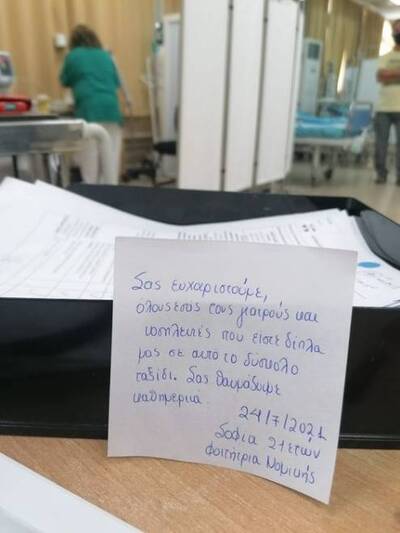 Σας ευχαριστούμε,
όλους εσάς τους γιατρούς και
νοσηλευτές που είστε δίπλα
μας σε αυτό το δύσκολο
ταξίδι. Σας θαυμάζουμε
καθημερινά.
24/7/2021
Σοφία 21 ετών
Φοιτήτρια Νομικής